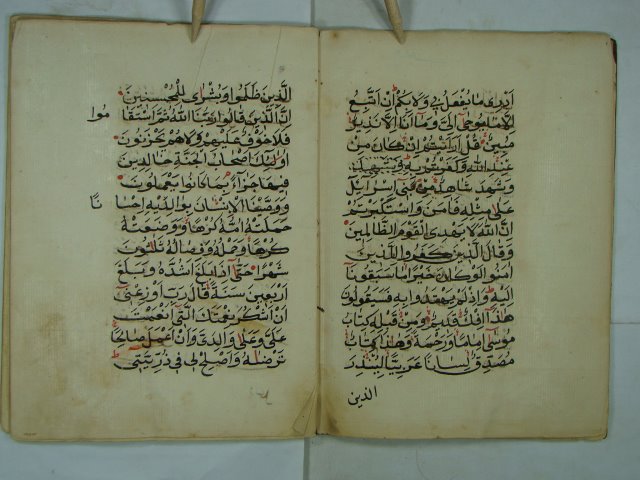 ادرى ما يفعل بى ولا بكم ان اتبع
الا ما يوحى الى وما انا الا نذير
مبين قل ارايتم ان كان من
عند الله وكفرتم به
وشهد شاهد من بنى اسرايل
على مثله فامن واستكبرتم
ان الله لا يهدى القوم الظالمين
وقال الذين كفروا للذين
امنوا لو كان خيرا ما سبقونا
اليه واذ لم يهتدوا به فسيقولون
هذا افك قديم ومن قبله كتاب
موسى اماما ورحمة وهذا كتاب
مصدق لسانا عربيا لينذر
الذين
الذين ظلموا وبشرى للمحسنين
ان الذين قالوا ربنا الله ثم استقاموا
فلا خوف عليهم ولا هم يحزنون
اولئك اصحاب الجنة خالدين
فيها جزاء بما كانوا يعملون
ووصينا الانسان بوالديه احسانا
حملته امه كرها ووضعته
كرها وحمله وفصاله ثلثون
شهرا حتى اذا بلغ اشده وبلغ
اربعين سنة قال رب اوزعنى
ان اشكر نعمتك التى انعمت
على وعلى والدى وان اعمل صالحا
ترضاه واصلح لى فى ذريتى